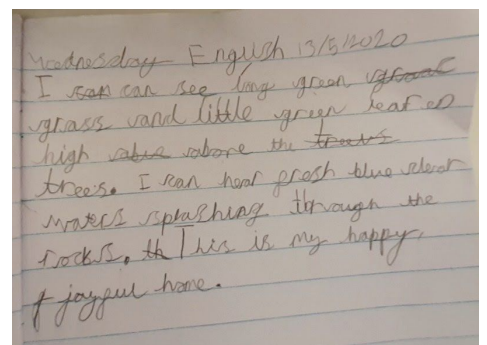 Wednesday English 13/5/2020
I can can see long green
grass and little green leaf on
high above the
trees. I can hear fresh blue clear
waters splashing through the
rocks, This is my happy,
joyful home.